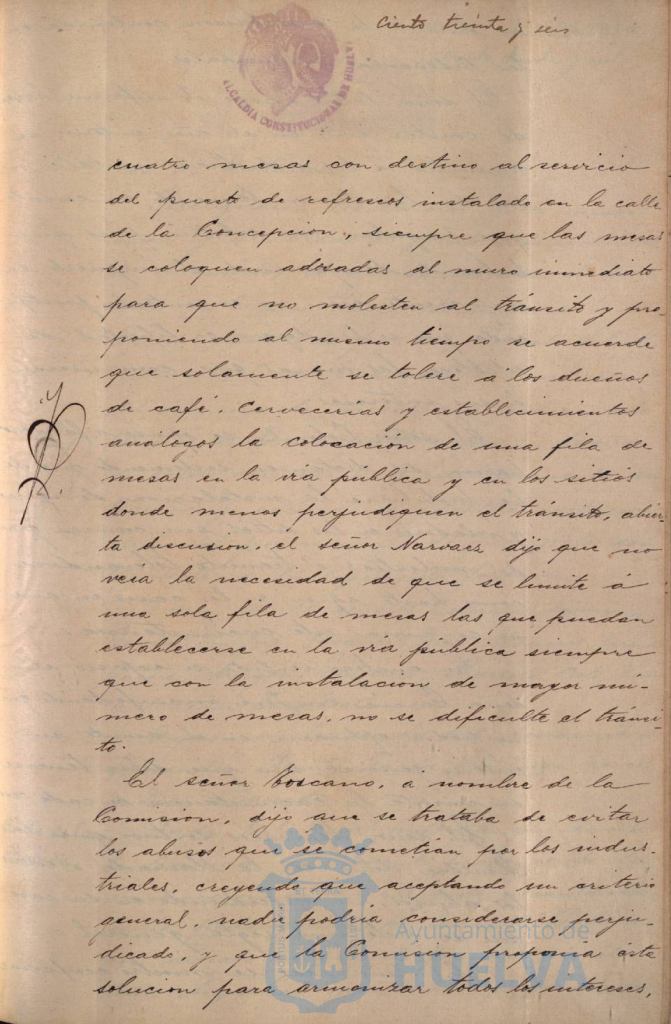 Ciento treinta y seis
ALCALDIA CONSTITUCIONAL DE HUELVA
cuatro mesas con destino al servicio
del puesto de refrescos instalado en la calle
de la Concepcion, siempre que las mesas
se coloquen adosadas al muro inmediato
para que no molesten al tránsito y pro-
poniendo al mismo tiempo se acuerde
que solamente se tolere á los dueños
de café, cervecerías y establecimientos
análogos la colocación de una fila de
mesas en la via pública y en los sitios
donde menos perjudiquen el tránsito, abier-
ta discusion, el señor Narvaez dijo que no
veia la necesidad de que se limite á
una sola fila de mesas las que puedan
establecerse en la via pública siempre
que con la instalacion de mayor nú-
mero de mesas, no se dificulte el tránsi-
to.
El señor Toscano, a nombre de la
Comision, dijo que se trataba de evitar
los abusos que se cometian por los indus-
triales, creyendo que aceptando un criterio
general, nadie podria considerarse perju-
dicado, y que la Comision proponia esta
solucion para armonizar todos los intereses,
Ayuntamiento de
HUELVA